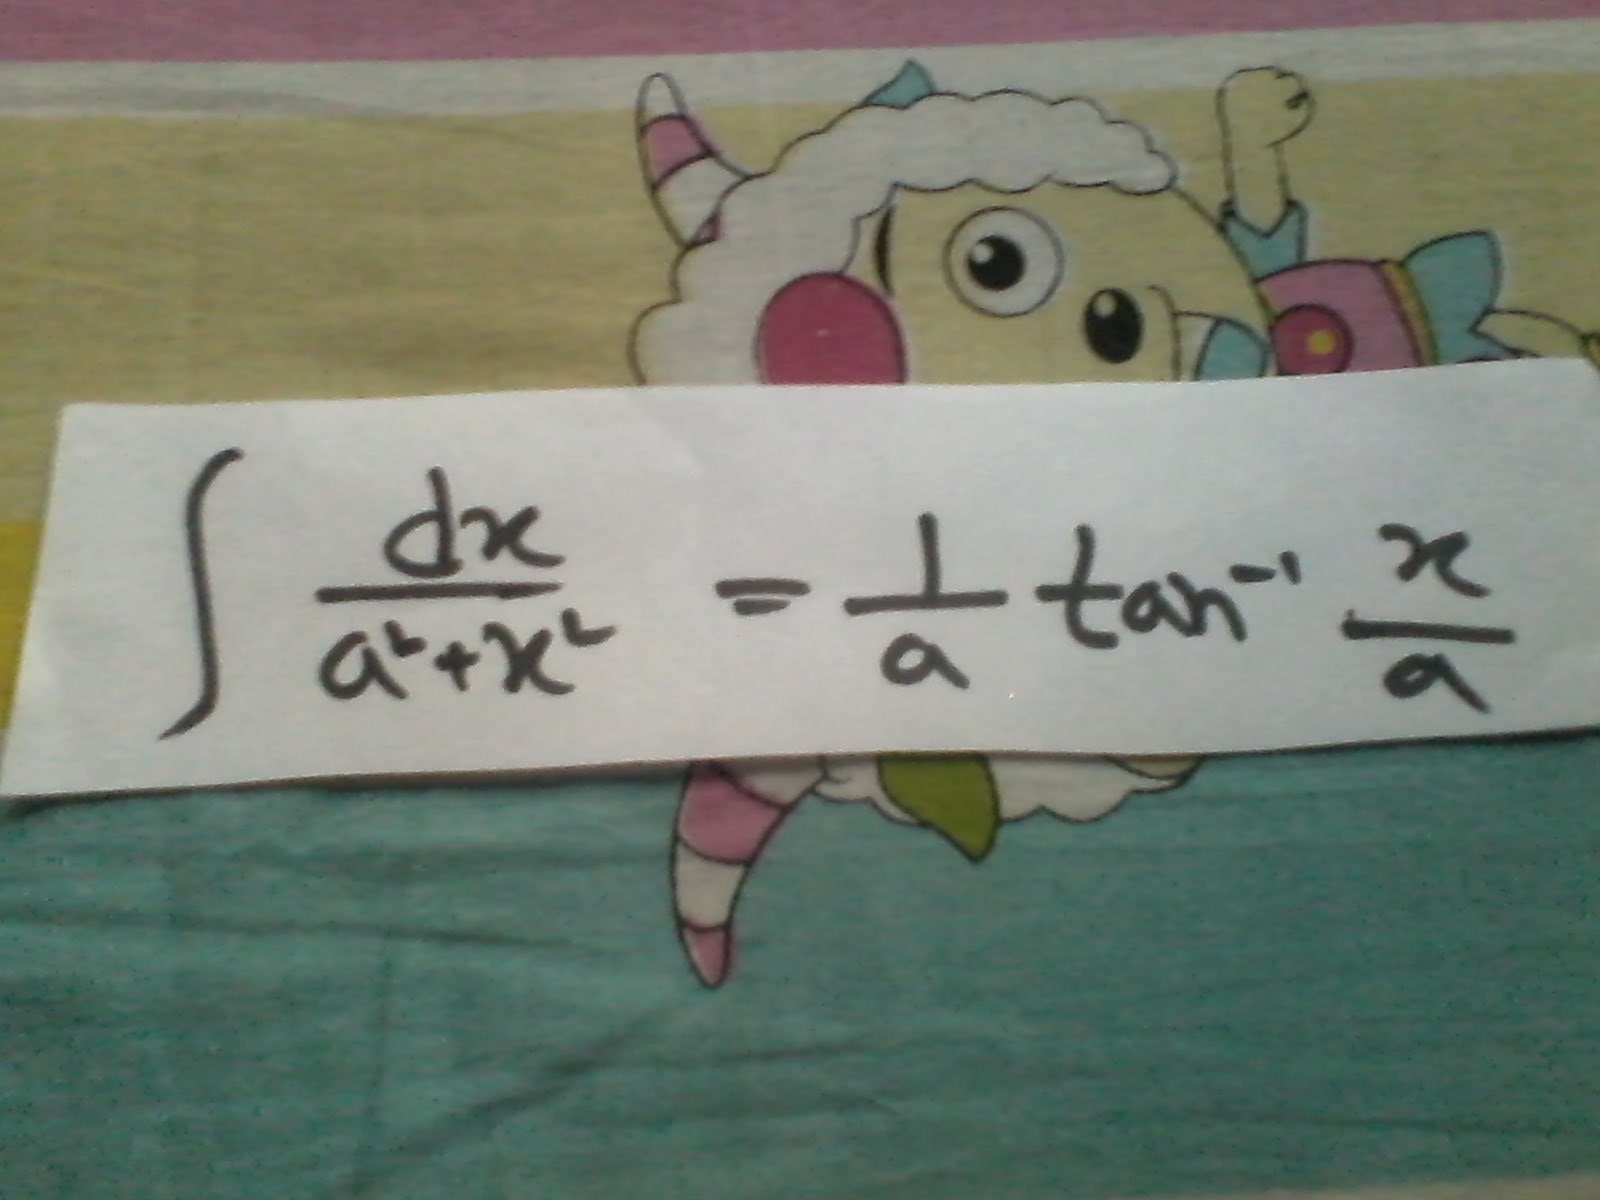 ∫ dx/(a²+x²) = 1/a tan⁻¹ x/a